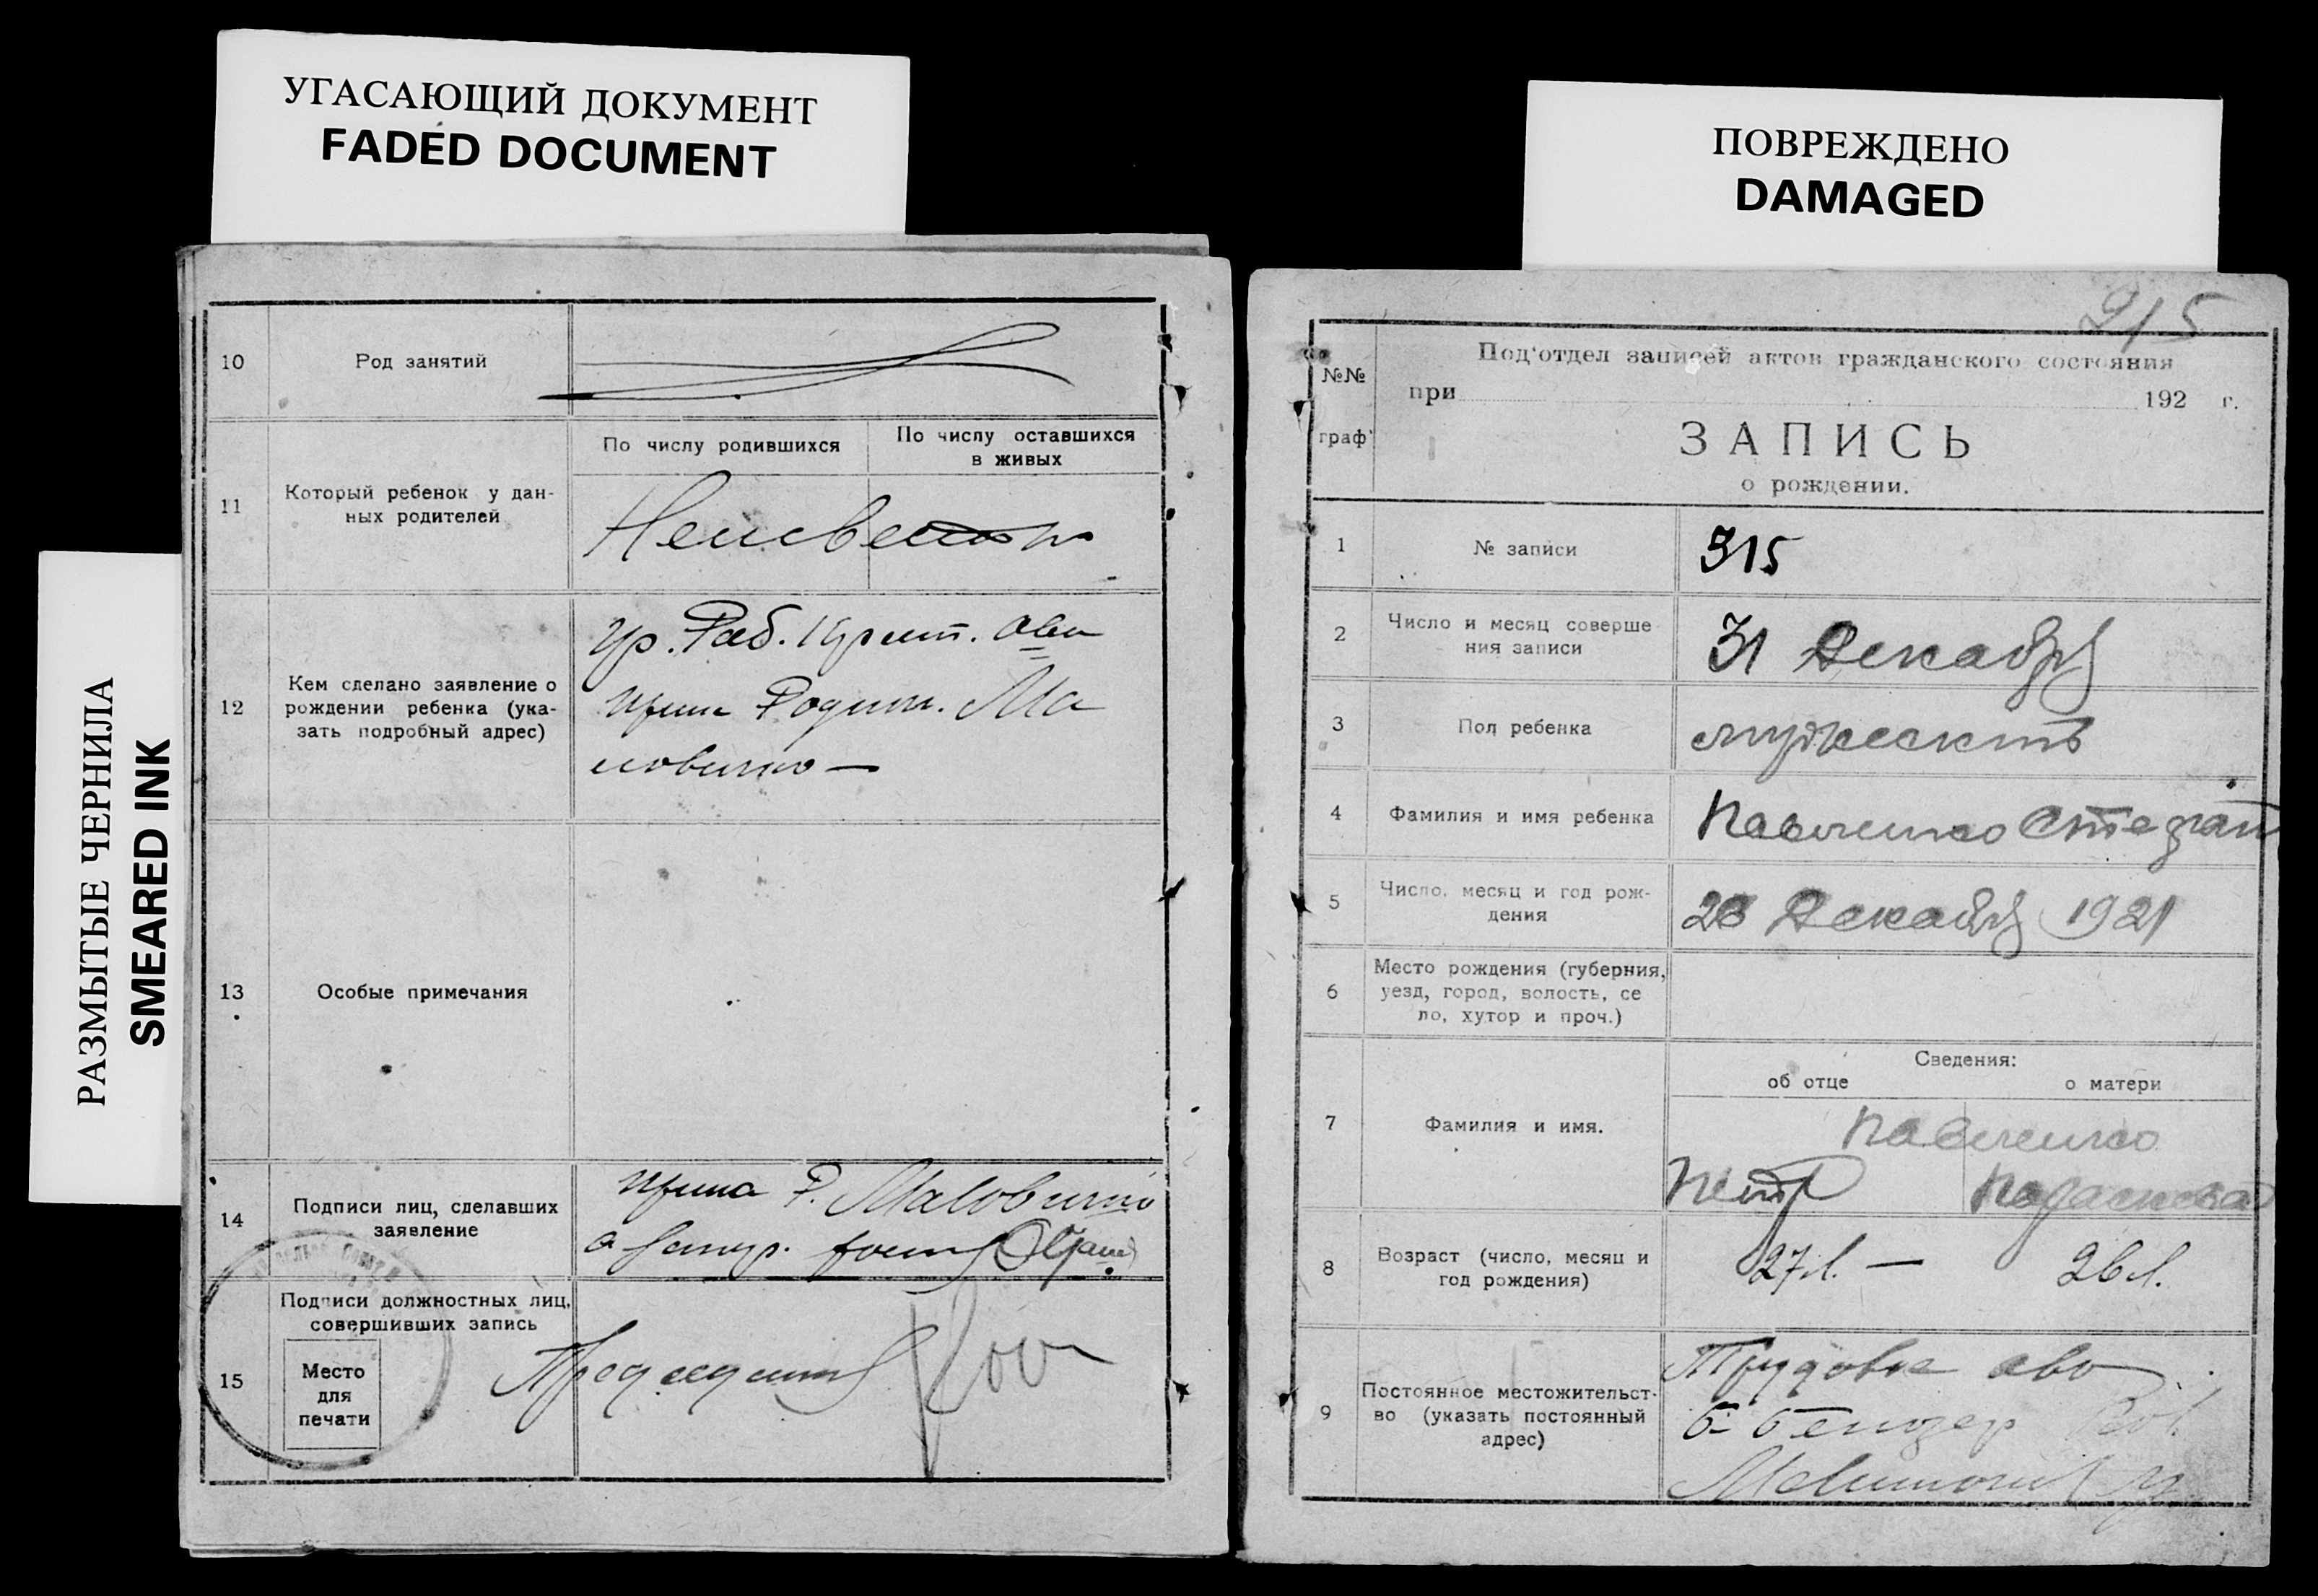 УГАСАЮЩИЙ ДОКУМЕНТ
FADED DOCUMENT
РАЗМЫТЫЕ ЧЕРНИЛА
SMEARED INK
10
Род занятий
11
Который ребенок у дан-
ных родителей
По числу родившихся
По числу оставшихся
в живых
Неизвестно
12
Кем сделано заявление о
рождении ребенка (ука-
зать подробный адрес)
гр. Раб. Крест.
Ирина Родион. Ма
ловичко —
13
Особые примечания
14
Подписи лиц, сделавших
заявление
Ирина Р. Маловичко
а
15
Подписи должностных лиц,
совершивших запись
Место
для
печати
Председатель
ПОВРЕЖДЕНО
DAMAGED
№№
граф
Под'отдел записей актов гражданского состояния
при 192 г.
ЗАПИСЬ
о рождении.
1
№ записи
315
2
Число и месяц соверше
ния записи
31 Декабря
3
Пол ребенка
мужескить
4
Фамилия и имя ребенка
Павленко Степан
5
Число, месяц и год рож-
дения
28 Декабря 1921
6
Место рождения (губерния,
уезд, город, волость, се
ло, хутор и проч.)
7
Фамилия и имя.
Сведения:
об отце
о матери
Павленко
Петр
Параскева
8
Возраст (число, месяц и
год рождения)
27 л. —
26 л.
9
Постоянное местожительст-
во (указать постоянный
адрес)